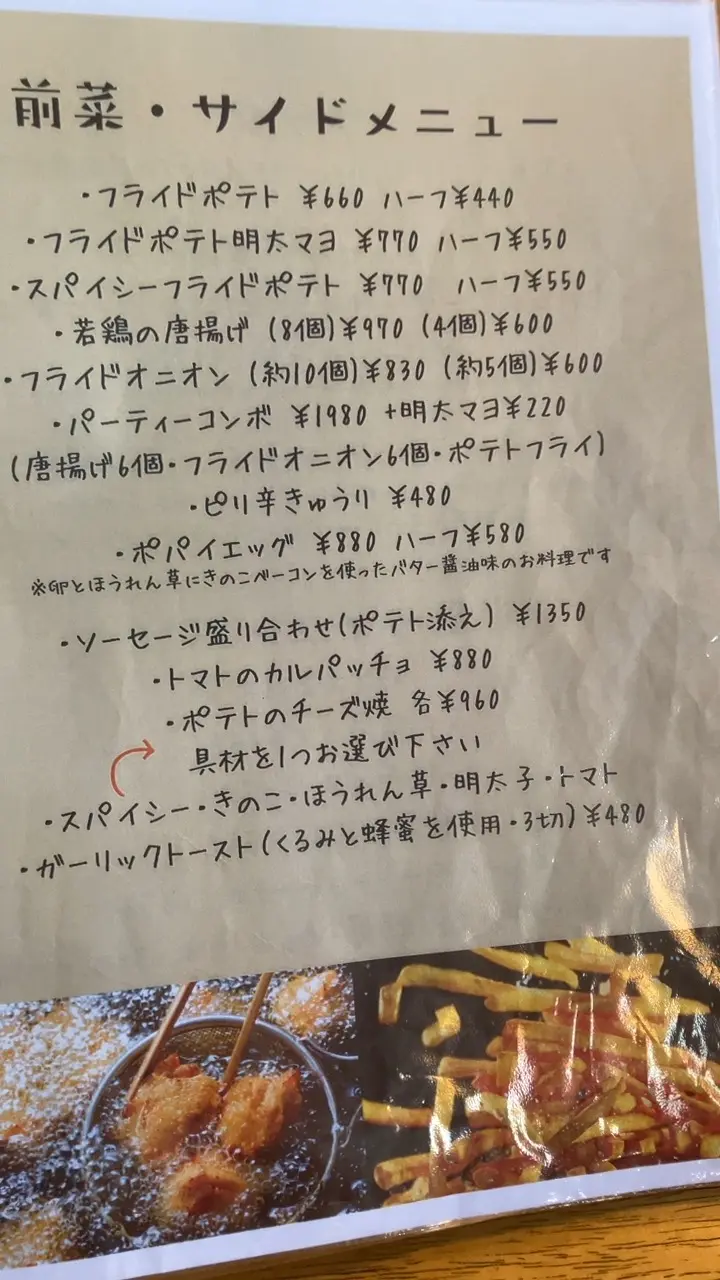 前菜・サイドメニュー
・フライドポテト ¥660 ハーフ¥440
・フライドポテト明太マヨ ¥770 ハーフ¥550
・スパイシーフライドポテト ¥770 ハーフ¥550
・若鶏の唐揚げ (8個)¥970 (4個)¥600
・フライドオニオン (約10個)¥830 (約5個)¥600
・パーティーコンボ ¥1980 +明太マヨ¥220
(唐揚げ6個・フライドオニオン6個・ポテトフライ)
・ピリ辛きゅうり ¥480
・ポパイエッグ ¥880 ハーフ¥580
※卵とほうれん草にきのこベーコンを使ったバター醤油味のお料理です
・ソーセージ盛り合わせ(ポテト添え) ¥1350
・トマトのカルパッチョ ¥880
・ポテトのチーズ焼 各¥960
具材を1つお選び下さい
・スパイシー・きのこ・ほうれん草・明太子・トマト
・ガーリックトースト(くるみと蜂蜜を使用・3切)¥480